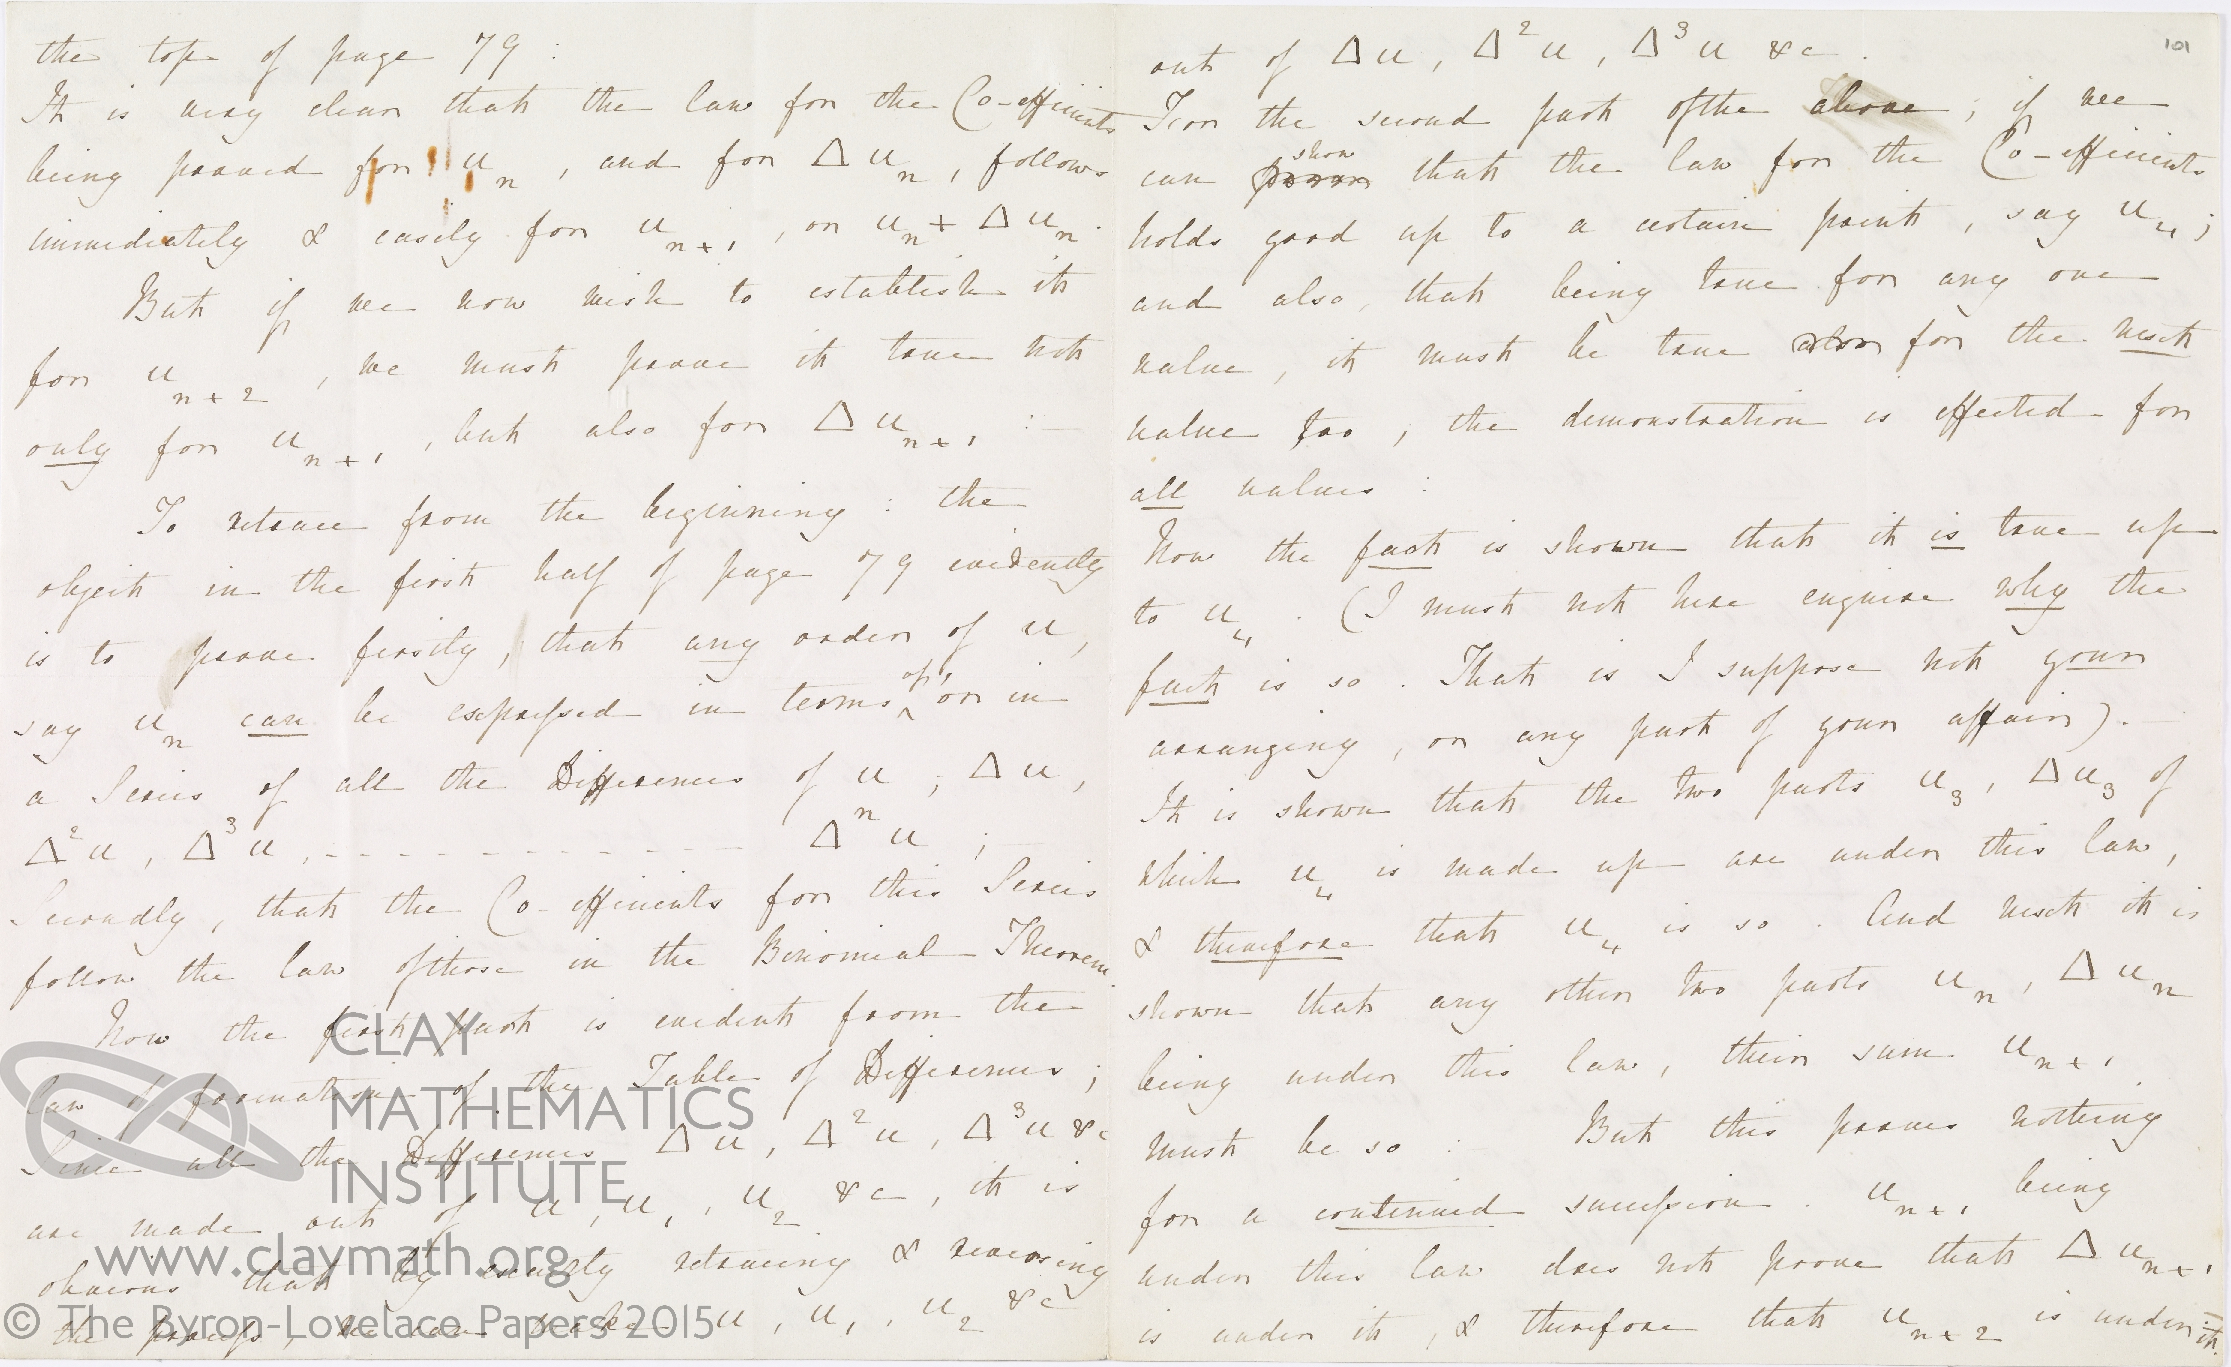 the top of page 79 :
It is very clear that the law for the Co-efficients
being proved for uₙ , and for Δuₙ , follows
immediately & easily for uₙ₊₁ , or uₙ + Δuₙ .
But if we now wish to establish it
for uₙ₊₂ , we must prove it true not
only for uₙ₊₁ , but also for Δuₙ₊₁ :—
To retrace from the beginning : the
object in the first half of page 79 evidently
is to prove firstly, that any order of u,
say uₙ can be expressed in terms of, or in
a Series of all the Differences of u ; Δu ,
Δ²u , Δ³u , - - - - - - - - - - - - Δⁿu ;
Secondly, that the Co-efficients for this Series
follow the law of those in the Binomial Theorem
Now the first part is evident from the
law of formation of the Table of Differences ;
Since all the Differences Δu , Δ²u , Δ³u &c
are made out of u , u₁ , u₂ &c , it is
obvious that by exactly retracing & reversing
the process, we can make u , u₁ , u₂ &c
101
out of Δu , Δ²u , Δ³u &c .
For the second part of the above ; if we
can prove show that the law for the Co-efficients
holds good up to a certain point , say u₄ ;
and also, that being true for any one
value , it must be true also for the next
value too , the demonstration is effected for
all values :
Now the fact is shown that it is true up
to u₄ . (I must not here enquire why the
fact is so . That is I suppose not your
arranging , or any part of your affair) . —
It is shown that the two parts u₃ , Δu₃ of
which u₄ is made up are under this law ,
& therefore that u₄ is so . And next it is
shown that any other two parts uₙ , Δuₙ
being under this law, their sum uₙ₊₁
must be so :— But this proves nothing
for a continued succession . uₙ₊₁ being
under this law does not prove that Δuₙ₊₁
is under it , & therefore that uₙ₊₂ is under it.
CLAY
MATHEMATICS
INSTITUTE
www.claymath.org
© The Byron-Lovelace Papers 2015